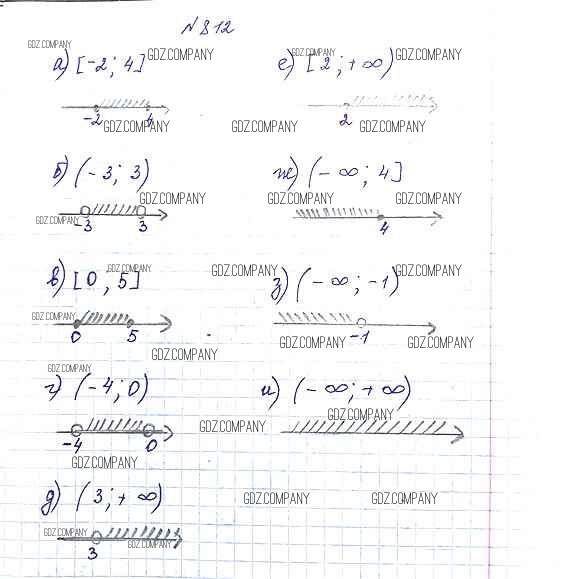 N 812
GDZ.COMPANY GDZ.COMPANY GDZ.COMPANY GDZ.COMPANY
а) [-2; 4] е) [2; +∞)
-2 4 2
GDZ.COMPANY GDZ.COMPANY GDZ.COMPANY
б) (-3; 3) ж) (-∞; 4]
GDZ.COMPANY GDZ.COMPANY GDZ.COMPANY
GDZ.COMPANY
-3 3 4
GDZ.COMPANY GDZ.COMPANY GDZ.COMPANY
в) [0, 5] з) (-∞; -1)
GDZ.COMPANY
0 5 -1
GDZ.COMPANY GDZ.COMPANY
GDZ.COMPANY
GDZ.COMPANY
г) (-4; 0) и) (-∞; +∞)
GDZ.COMPANY
GDZ.COMPANY
-4 0
GDZ.COMPANY
д) (3; +∞)
GDZ.COMPANY GDZ.COMPANY
GDZ.COMPANY GDZ.COMPANY
3